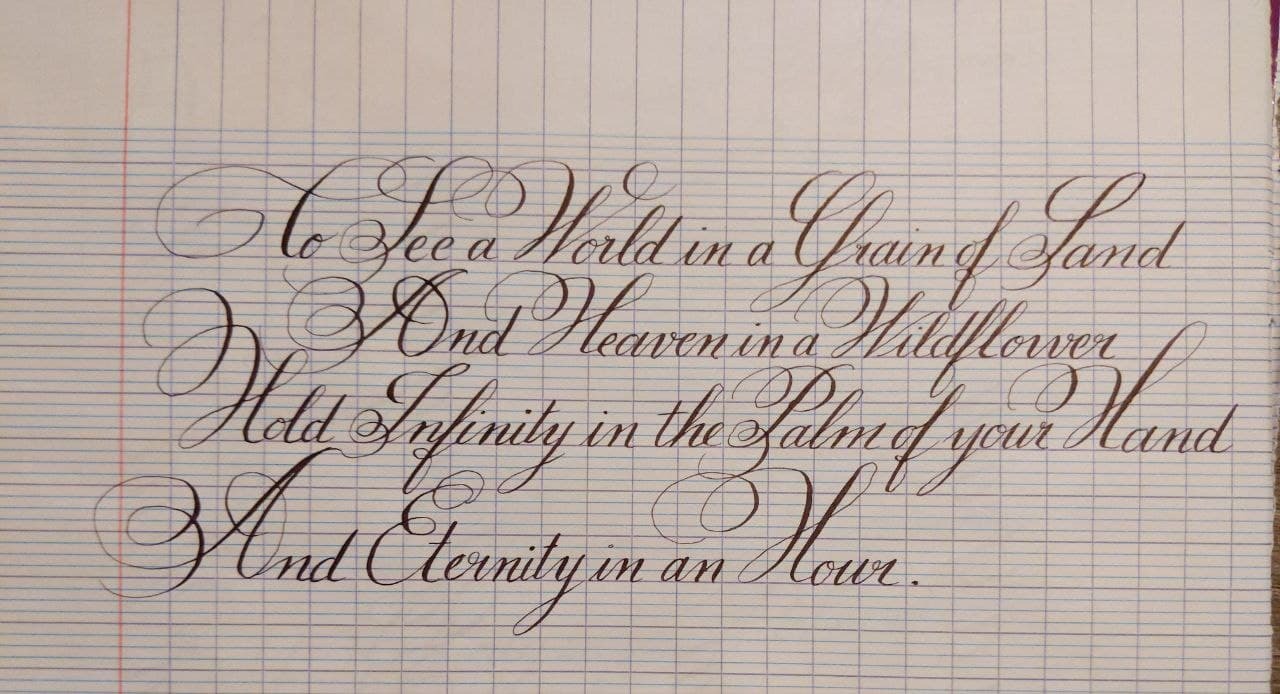 To See a World in a Grain of Sand
And Heaven in a Wildflower
Hold Infinity in the Palm of your Hand
And Eternity in an Hour.